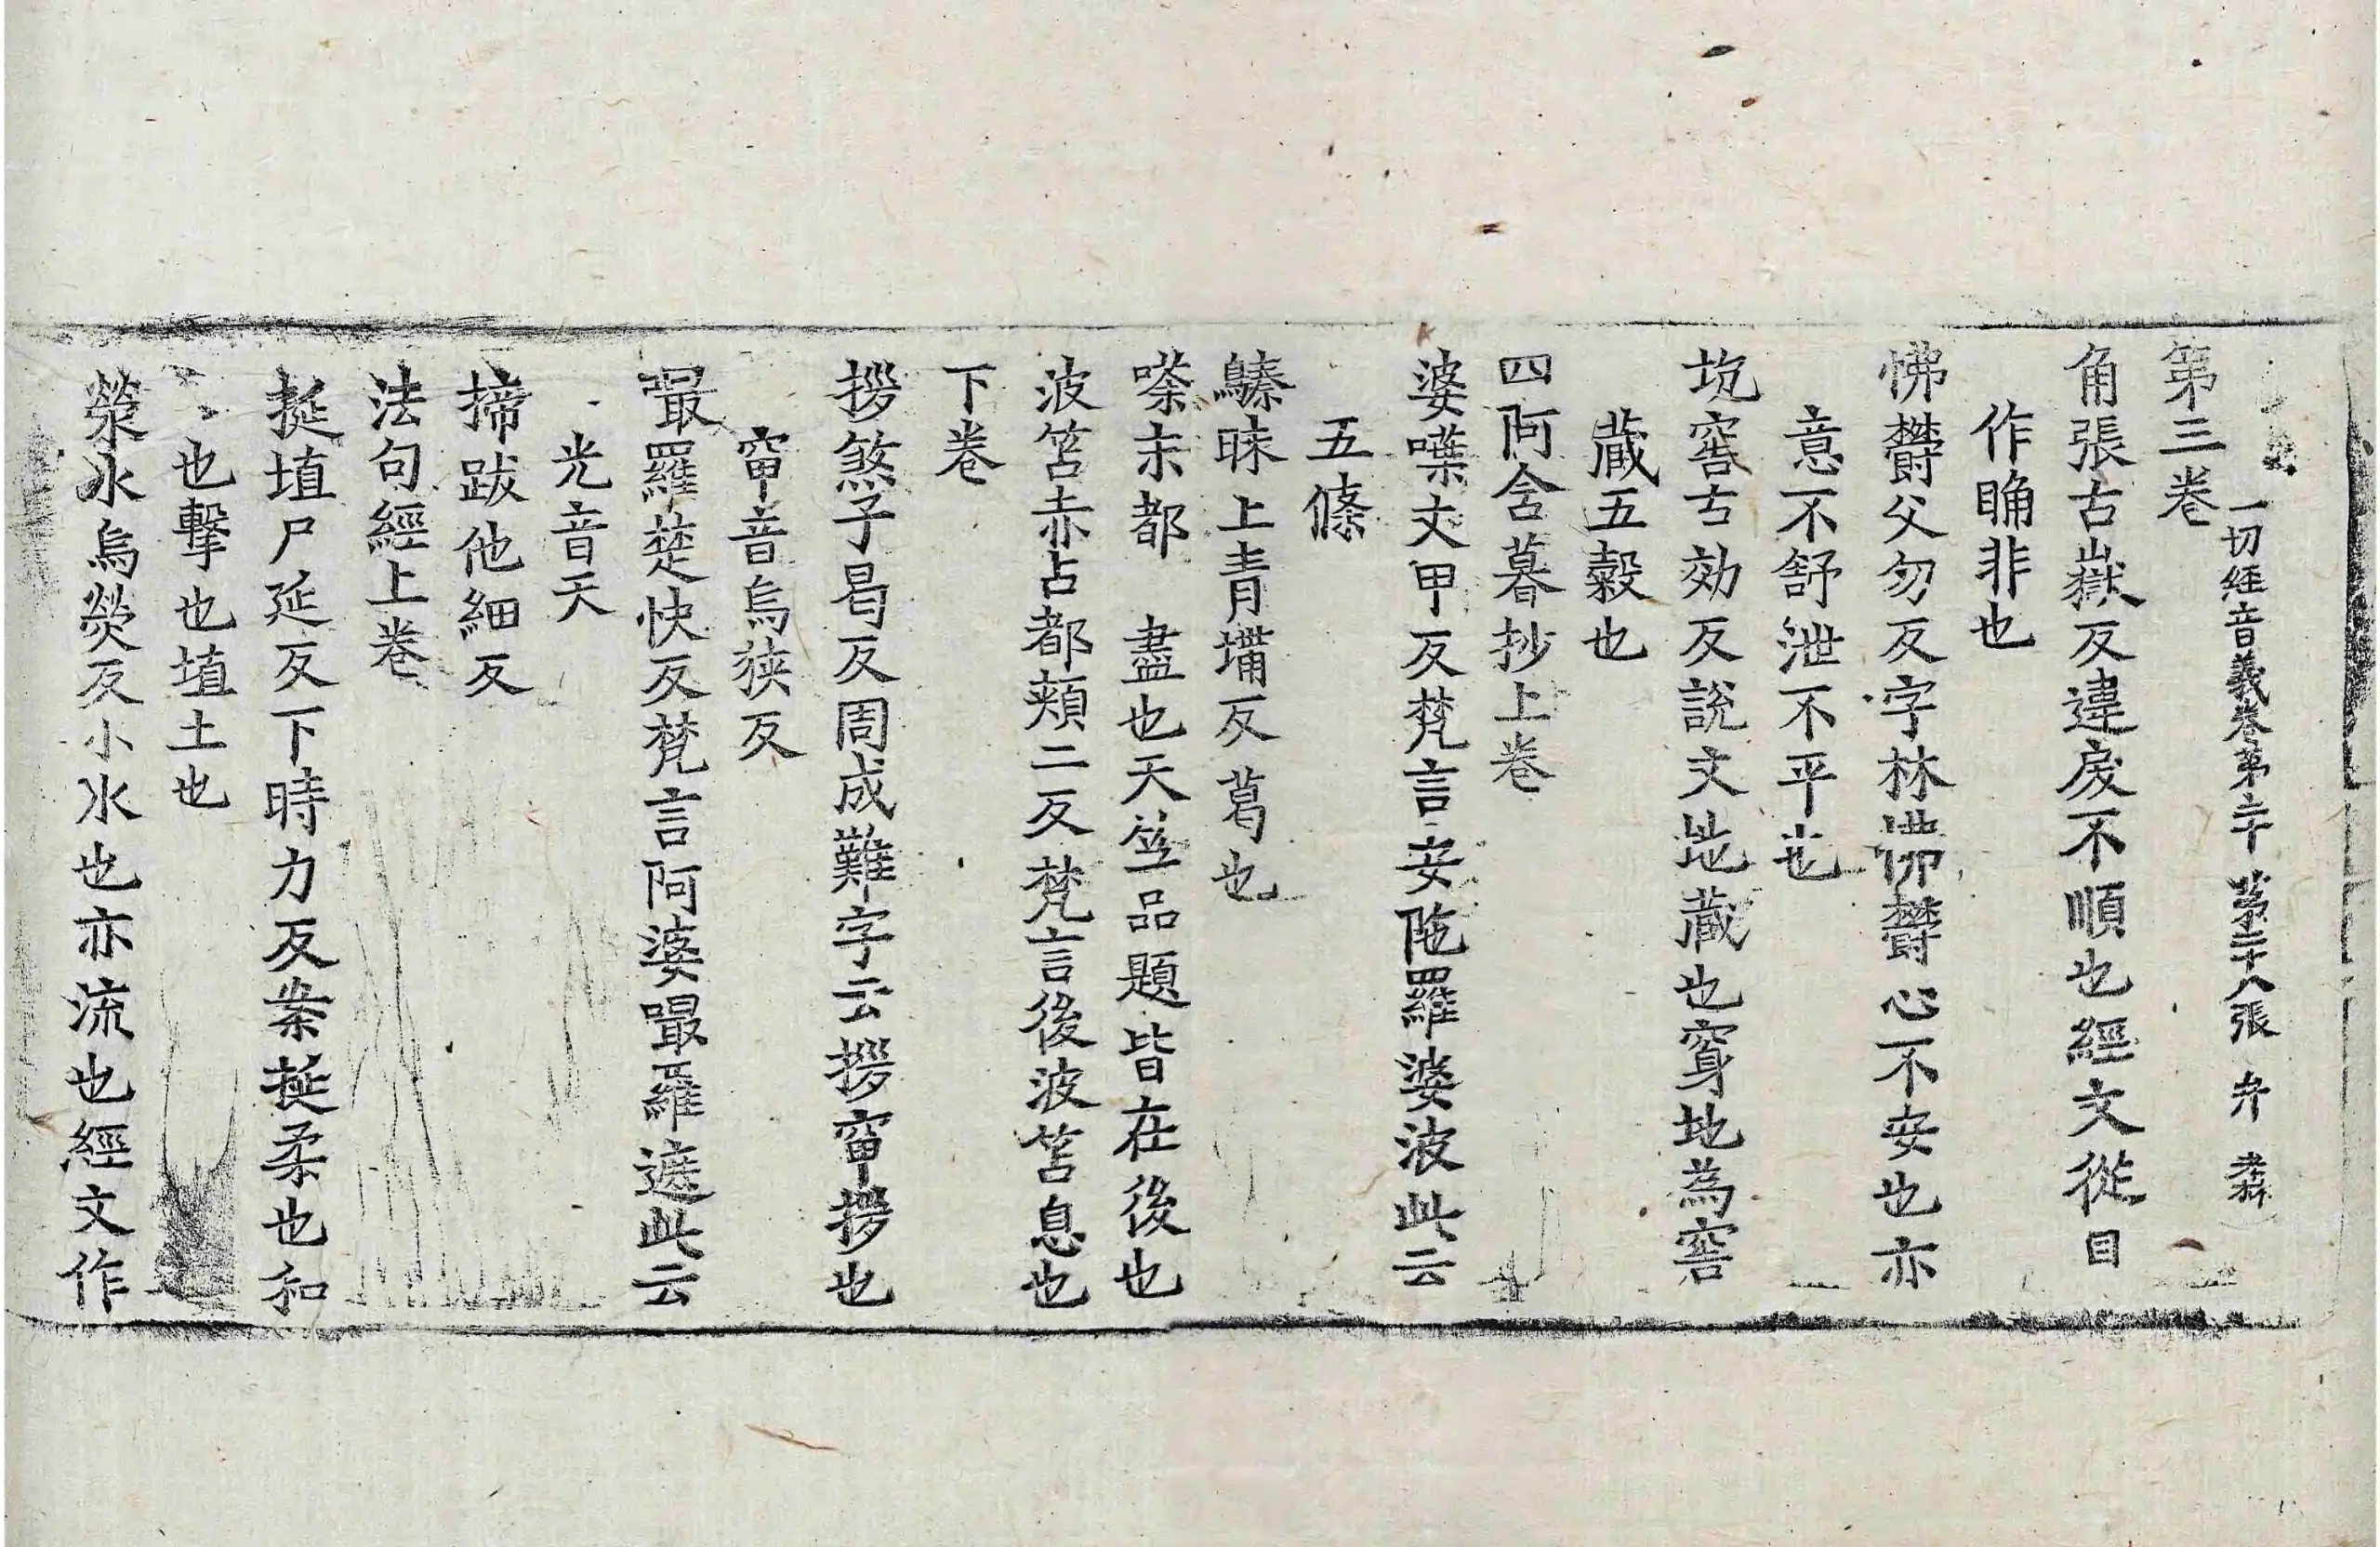 一切経音義卷第二十 第二十八張 弁
第三卷
角張古嶽反違戾不順也經文從目
作𥆧非也
怫欝父勿反字林怫欝心不安也亦
意不舒泄不平也
坑窖古効反說文地藏也穿地為窖
藏五穀也
四阿含暮抄上卷
婆㗼丈甲反梵言安陁羅婆波此云
五條
鷜昧上青墉反葛也
嗏末都 盡也天竺品題皆在後也
波笘赤占都頰二反梵言後波笘息也
下卷
拶煞子曷反周成難字云拶窜拶也
窜音烏狹反
嘬羅楚快反梵言阿婆嘬羅遮此云
光音天
揥跋他細反
法句經上卷
挻埴尸延反下時力反案挻柔也和
也擊也埴土也
滎水烏熒反小水也亦流也經文作